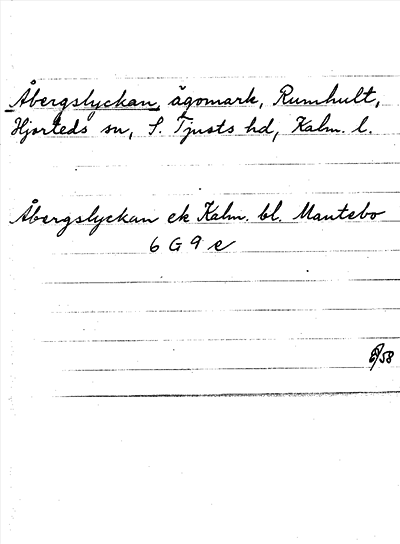 Åbergslyckan, ägomark, Rumhult,
Hjorteds sn, S. Tjusts hd, Kalm. l.
Åbergslyckan ek Kalm. bl. Mantebo
6 G 9 e